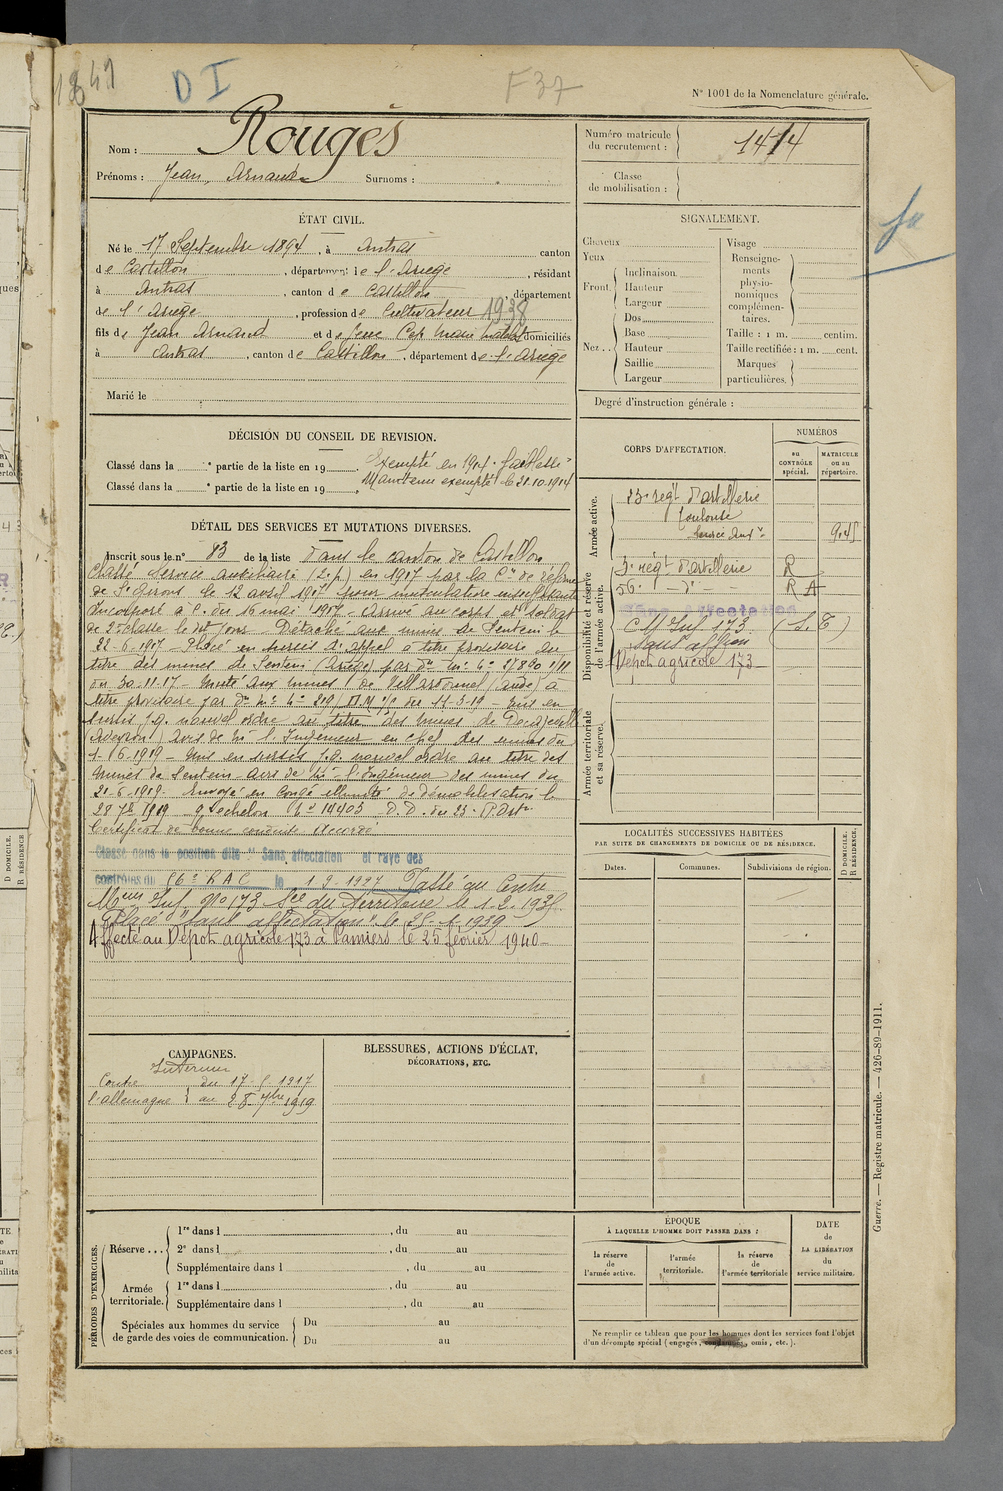 1841
D I
F37
N° 1001 de la Nomenclature générale.
Nom : Rougès
Prénoms : Jean, Armand Surnoms :
Numéro matricule du recrutement : 1414
Classe de mobilisation :
ÉTAT CIVIL.
Né le 17 Septembre 1894, à Antras canton
de Castillon, département de l'Ariège, résidant
à Antras, canton de Castillon, département
de l'Ariège, profession de Cultivateur 1938
fils de Jean Armand et de domiciliés
à Antras, canton de Castillon, département de l'Ariège
Marié le
SIGNALEMENT.
Cheveux
Yeux
Front. Inclinaison
Hauteur
Largeur
Nez .. Dos
Base
Hauteur
Saillie
Largeur
Visage
Renseignements physionomiques complémentaires.
Taille : 1 m. centim.
Taille rectifiée : 1 m. cent.
Marques particulières.
Degré d'instruction générale :
DÉCISION DU CONSEIL DE REVISION.
Classé dans la ° partie de la liste en 19 Exempté en 1914. faiblesse
Classé dans la ° partie de la liste en 19 Maintenu exempté le 21.10.1914
DÉTAIL DES SERVICES ET MUTATIONS DIVERSES.
Inscrit sous le n° 83 de la liste dans le canton de Castillon
Classé Service auxiliaire (2.p) en 1917 par la Con de réforme
de St Girons le 12 avril 1917 pour musculature insuffisante
Incorporé à c. du 16 mai 1917 - Arrivé au corps et soldat
de 2e classe le dit jour - Détaché aux mines de Sentein le
22-6-1917 - Placé en sursis d'appel à titre provisoire au
titre des mines de Sentein (Ariège) par
du 30-11-17 - Muté aux mines de (aude) à
titre provisoire par du 17-3-19 - mis en
sursis j.q. nouvel ordre au titre des mines de Decazeville
Aveyron) avis de Mr l'Ingénieur en chef des mines du
1-6-1919 - Mis en sursis j.q. nouvel ordre au titre des
mines de Sentein avis de Mr l'Ingénieur des mines du
21-6-1919. Envoyé en congé illimité de démobilisation le
28 7bre 1919 9e échelon No 14403 D.D. du 23e R.Art
Certificat de bonne conduite Accordé
Classé dans la position dite "Sans affectation" et rayé des
contrôles du 56e RAC le 1 9. 1927 Passé au Centre
Mem Inf. No 173 Sce du territoire le 1.2.193
Placé "sans affectation" le 25-1-1939
Affecté au Dépôt agricole 173 à Pamiers le 25 février 1940-
CORPS D'AFFECTATION.
NUMÉROS
au CONTRÔLE spécial.
MATRICULE ou au répertoire.
Armée active.
23e regt d'artillerie
Toulouse
Service Auxre 945
Disponibilité et réserve de l'armée active.
3e régt d'artillerie R
56e - d° - R A
Sans affectation
CM Inf 173 (S.T)
Sans affon
Dépôt agricole 173
Armée territoriale et sa réserve.
LOCALITÉS SUCCESSIVES HABITÉES
PAR SUITE DE CHANGEMENTS DE DOMICILE OU DE RÉSIDENCE.
Dates. Communes. Subdivisions de région.
D DOMICILE.
R RÉSIDENCE.
CAMPAGNES.
Intérieur
Contre du 17-5-1917
l'allemagne au 28 7bre 1919
BLESSURES, ACTIONS D'ÉCLAT,
DÉCORATIONS, ETC.
PÉRIODES D'EXERCICES.
Réserve ... 1re dans l , du au
2e dans l , du au
Supplémentaire dans l , du au
Armée territoriale. 1re dans l , du au
Supplémentaire dans l , du au
Spéciales aux hommes du service de garde des voies de communication. Du au
Du au
ÉPOQUE
À LAQUELLE L'HOMME DOIT PASSER DANS :
la réserve de l'armée active.
l'armée territoriale.
la réserve de l'armée territoriale
DATE de LA LIBÉRATION du service militaire.
Ne remplir ce tableau que pour les hommes dont les services font l'objet
d'un décompte spécial (engagés, condamnés, omis, etc.).
Guerre. — Registre matricule. — 426-89-1911.